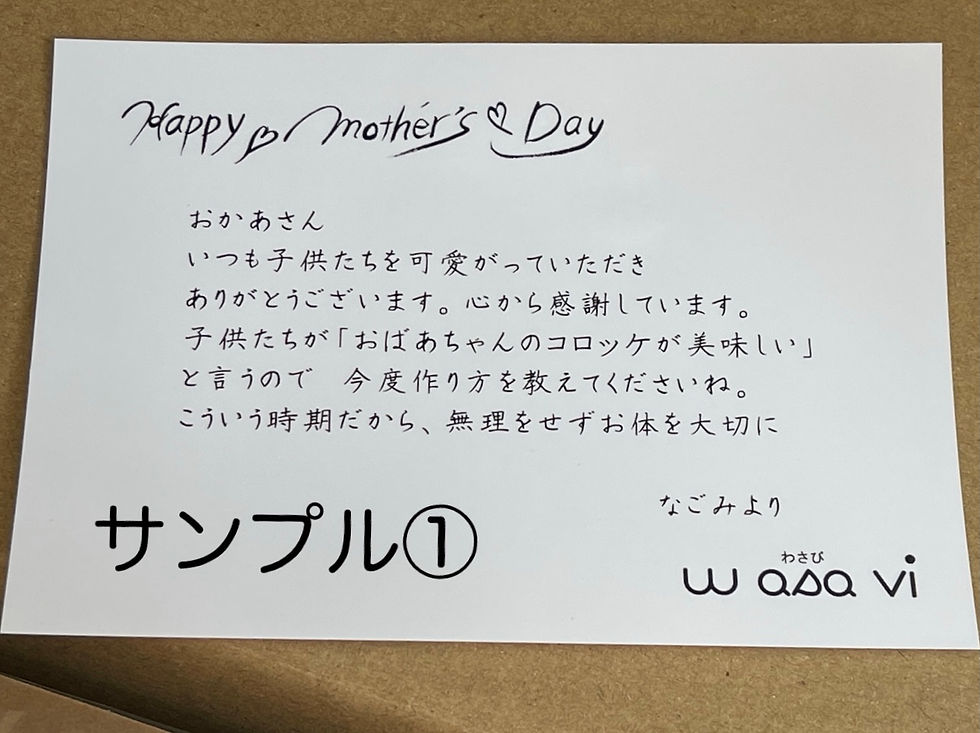 Happy Mother's Day
おかあさん
いつも子供たちを可愛がっていただき
ありがとうございます。心から感謝しています。
子供たちが「おばあちゃんのコロッケが美味しい」
と言うので　今度作り方を教えてくださいね。
こういう時期だから、無理をせずお体を大切に
なごみより
サンプル①
わさび
wasavi